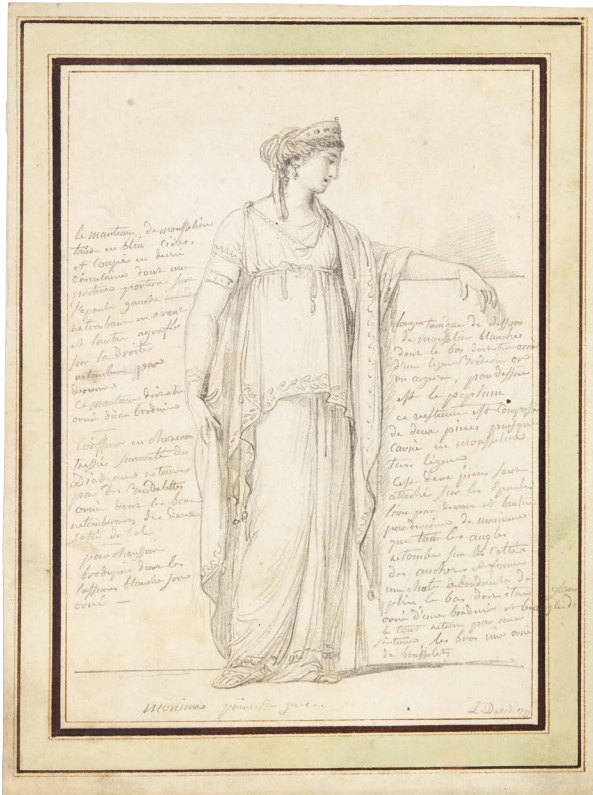 le manteau de mousseline
tout en bleu
et coupé en demi
circulaire dont une
portion portera sur
l'epaule gauche
retombant en avant
et l'autre agraffé
sur la droite
retombera par
derriere
ce manteau doit etre
orné d'une broderie
Coëffure en cheveux
tressés surmonté du
Diademe retenu
par des Bandelettes
orné dont les bouts
retomberont des deux
coté du col
pour chaussure
brodequin dont les
blanche
orné —
longue tunique de dessous
de mousseline blanche
dont le bas doit etre orné
d'une legere Broderie or
ou argent, par dessus
est le peplum
ce vetement est composé
de deux pieces presque
carrée en mousseline
tres légere
Ces deux pieces sont
attaché sur les épaules
l'une par devant et l'autre
par derriere de maniere
que tous les angles
retombe sur les cottés
des
plis, le bas doit etre
orné d'une broderie et
le tout retenu par une
ceinture les bras nue orné
de brasselets
Monime
L. David